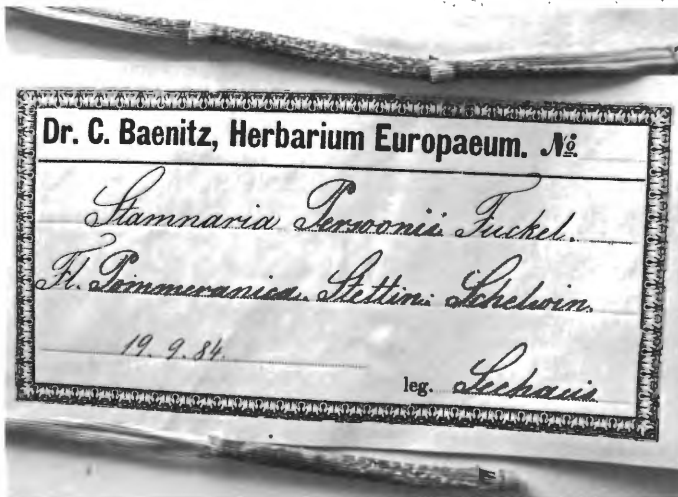 Dr. C. Baenitz, Herbarium Europaeum. No
Stamnaria Persoonii Fuckel.
Fl. Pommeranica. Stettin: Schelwin.
19. 9. 84.
leg.